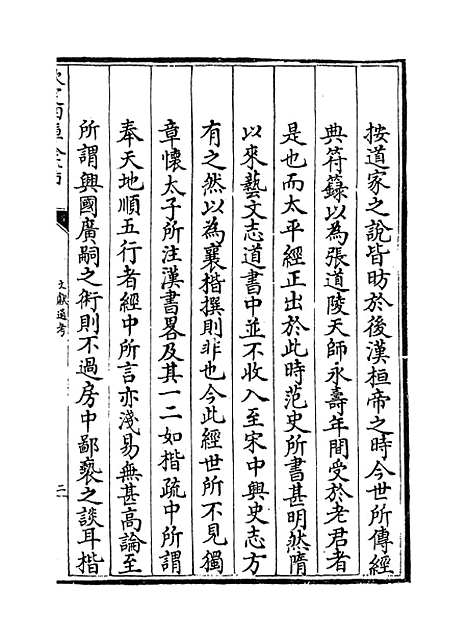 按道家之說皆昉於後漢桓帝之時今世所傳經
典符籙以為張道陵天師永壽年間受於老君者
是也而太平經正出於此時范史所書甚明然隋
以來藝文志道書中並不收入至宋中興史志方
有之然以為襄楷撰則非也今此經世所不見獨
章懷太子所注漢書畧及其一二如楷疏中所謂
奉天地順五行者經中所言亦淺易無甚高論至
所謂興國廣嗣之術則不過房中鄙褻之談耳楷
文獻通考